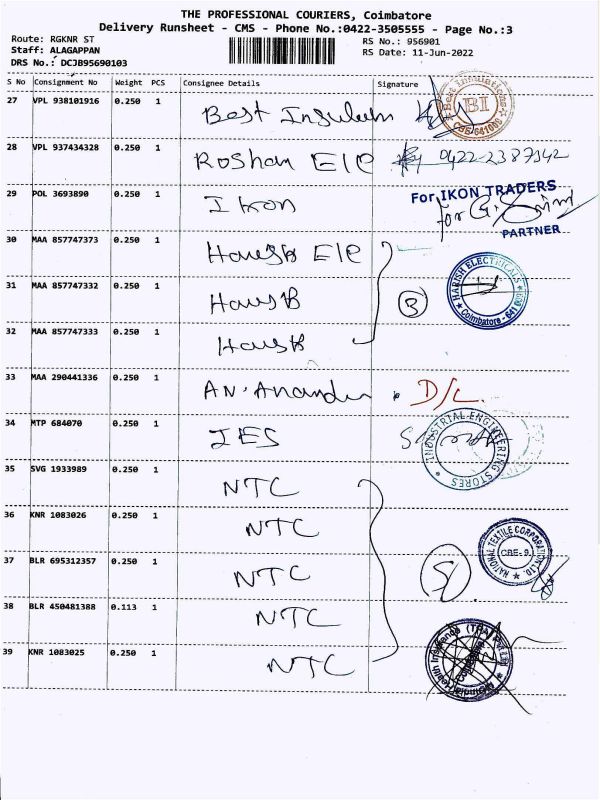 THE PROFESSIONAL COURIERS, Coimbatore
Delivery Runsheet - CMS - Phone No.:0422-3505555 - Page No.:3
Route: RGKNR ST
RS No.: 956901
Staff: ALAGAPPAN
RS Date: 11-Jun-2022
DRS No.: DCJB95690103
S No Consignment No Weight PCS Consignee Details Signature
27 VPL 938101916 0.250 1 Best
Best Insulations
BI
CBE-641008
28 VPL 937434328 0.250 1 Roshan Ele 0422-2387942
29 POL 3693890 0.250 1 Ikon
For IKON TRADERS
for G.
PARTNER
30 MAA 857747373 0.250 1 Ele
31 MAA 857747332 0.250 1
HARISH ELECTRICALS
Coimbatore - 641
3
32 MAA 857747333 0.250 1
33 MAA 290441336 0.250 1 D/L.
34 MTP 684070 0.250 1 IES
INDUSTRIAL ENGINEERING STORES
35 SVG 1933989 0.250 1 NTC
36 KNR 1083026 0.250 1 NTC
37 BLR 695312357 0.250 1 NTC
NATIONAL TEXTILE CORPORATION LTD.
CBE-9
5
38 BLR 450481388 0.113 1 NTC
39 KNR 1083025 0.250 1 NTC
Health Insurance (TPA)